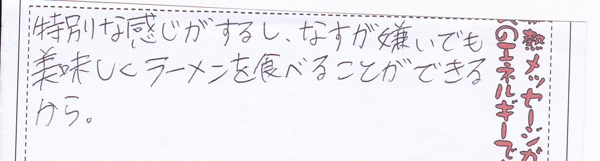 特別な感じがするし、なすが嫌いでも
美味しくラーメンを食べることができる
から。
熱メッセージが
のエネルギーで